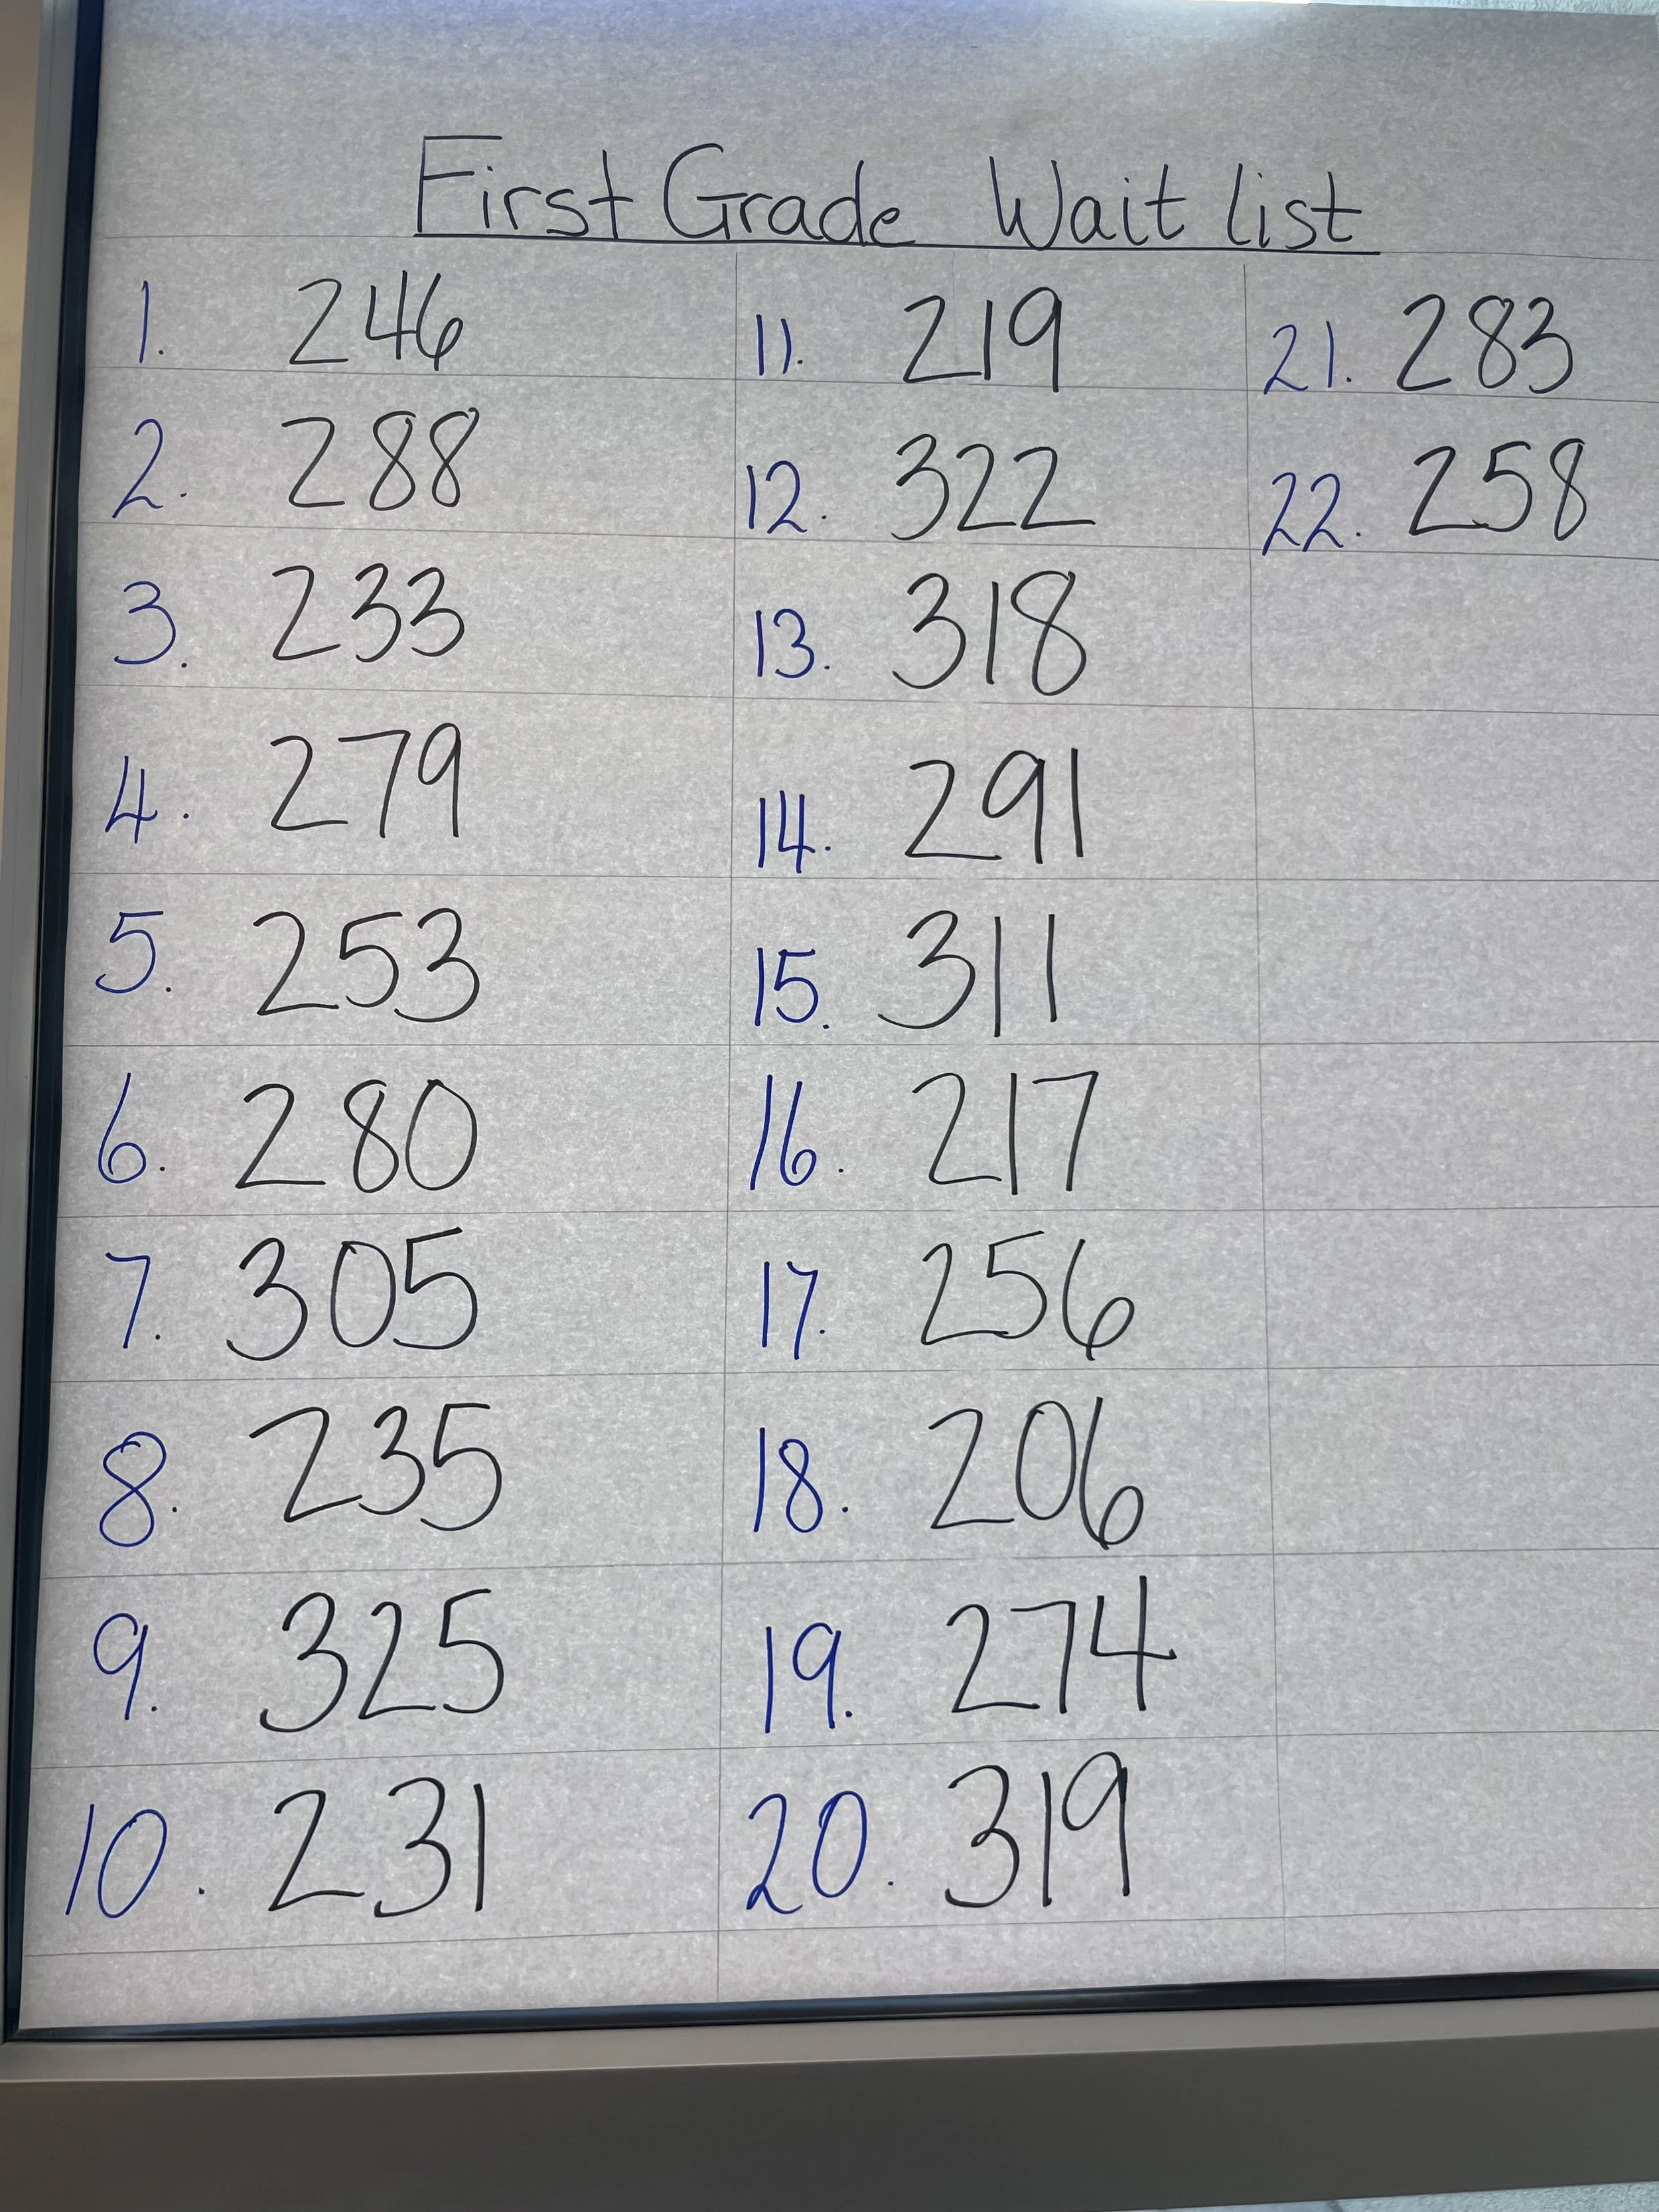 First Grade Wait list
1. 246
2. 288
3. 233
4. 279
5. 253
6. 280
7. 305
8. 235
9. 325
10. 231
11. 219
12. 322
13. 318
14. 291
15. 311
16. 217
17. 256
18. 206
19. 274
20. 319
21. 283
22. 258